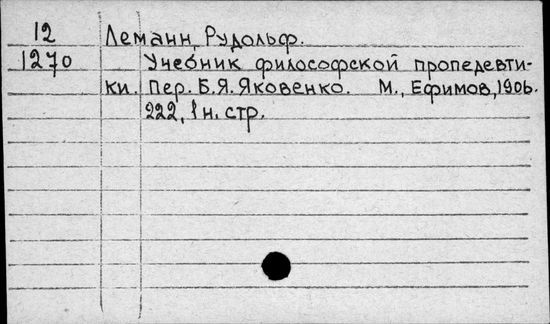 12 Леманн, Рудольф.
1270 Учебник философской пропедевти-
ки. Пер. Б.Я. Яковенко. М., Ефимов, 1906.
222, 1 н. стр.